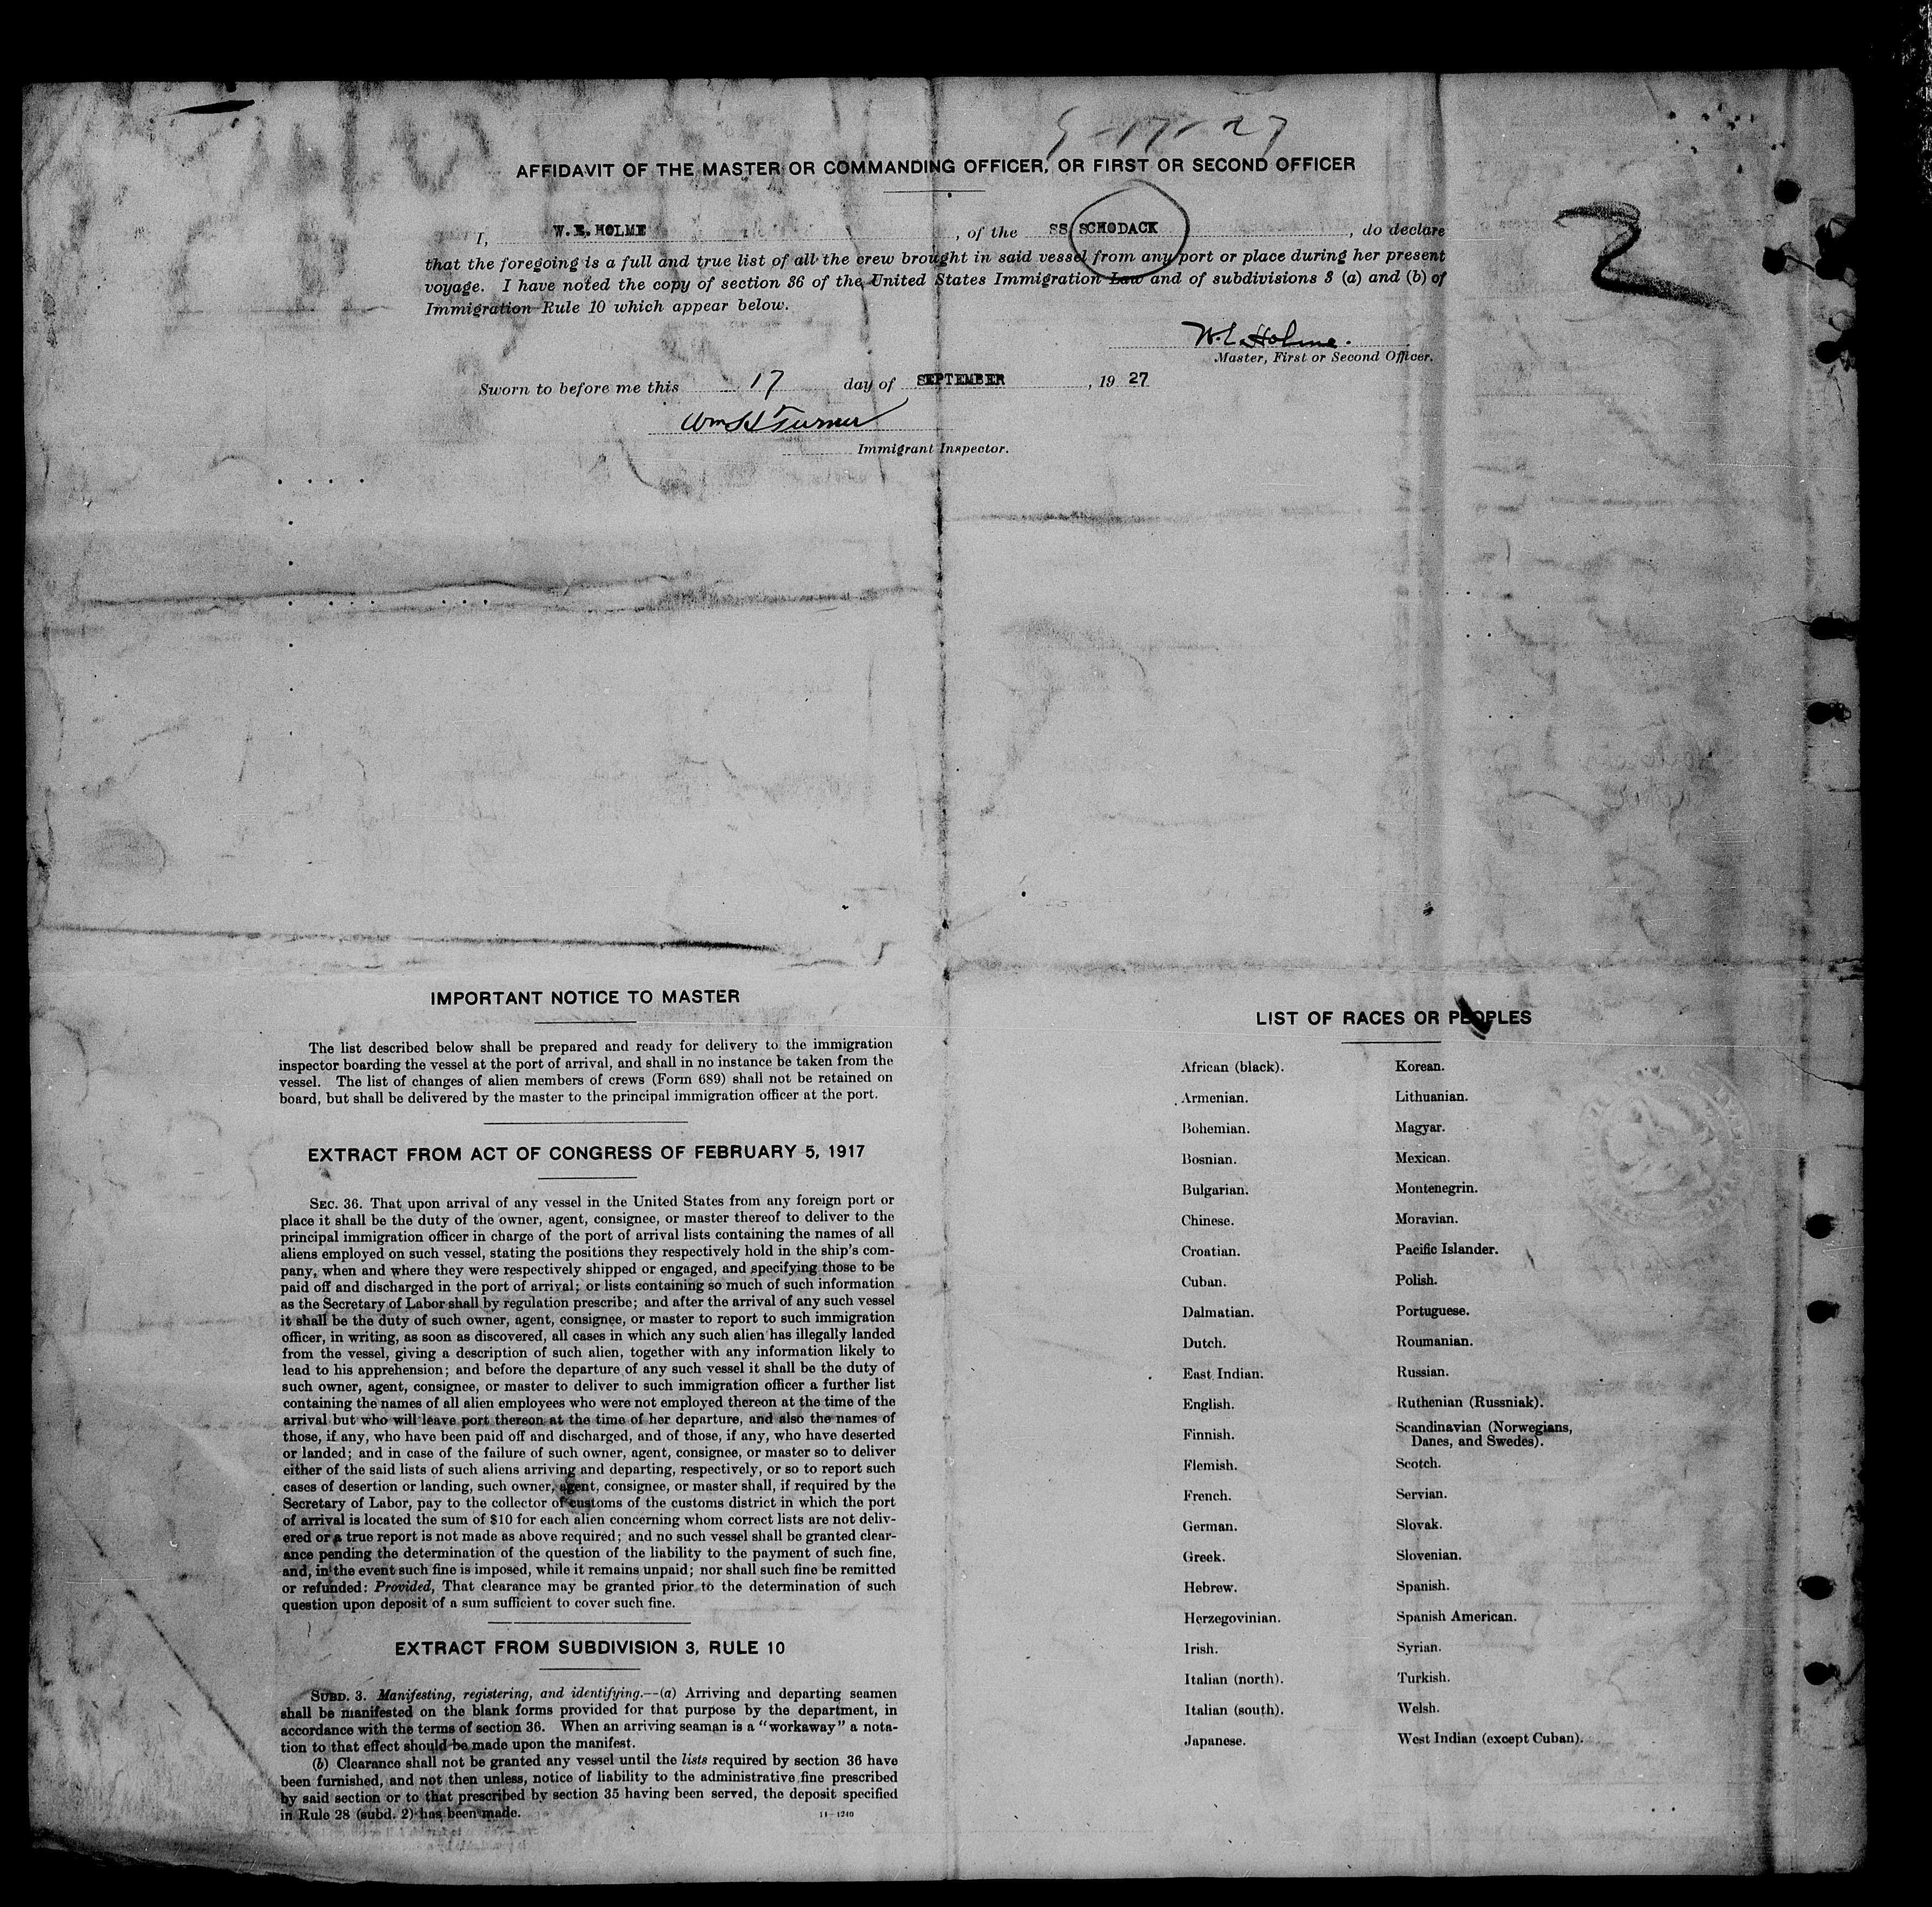 9-17-27
AFFIDAVIT OF THE MASTER OR COMMANDING OFFICER, OR FIRST OR SECOND OFFICER
I, W. E. HOLME, of the SS SCHODACK, do declare
that the foregoing is a full and true list of all the crew brought in said vessel from any port or place during her present
voyage. I have noted the copy of section 36 of the United States Immigration Law and of subdivisions 3 (a) and (b) of
Immigration Rule 10 which appear below.
2
W. E. Holme.
Master, First or Second Officer.
Sworn to before me this 17 day of SEPTEMBER, 1927
Wm H Turner
Immigrant Inspector.
IMPORTANT NOTICE TO MASTER
The list described below shall be prepared and ready for delivery to the immigration
inspector boarding the vessel at the port of arrival, and shall in no instance be taken from the
vessel. The list of changes of alien members of crews (Form 689) shall not be retained on
board, but shall be delivered by the master to the principal immigration officer at the port.
EXTRACT FROM ACT OF CONGRESS OF FEBRUARY 5, 1917
SEC. 36. That upon arrival of any vessel in the United States from any foreign port or
place it shall be the duty of the owner, agent, consignee, or master thereof to deliver to the
principal immigration officer in charge of the port of arrival lists containing the names of all
aliens employed on such vessel, stating the positions they respectively hold in the ship's com-
pany, when and where they were respectively shipped or engaged, and specifying those to be
paid off and discharged in the port of arrival; or lists containing so much of such information
as the Secretary of Labor shall by regulation prescribe; and after the arrival of any such vessel
it shall be the duty of such owner, agent, consignee, or master to report to such immigration
officer, in writing, as soon as discovered, all cases in which any such alien has illegally landed
from the vessel, giving a description of such alien, together with any information likely to
lead to his apprehension; and before the departure of any such vessel it shall be the duty of
such owner, agent, consignee, or master to deliver to such immigration officer a further list
containing the names of all alien employees who were not employed thereon at the time of the
arrival but who will leave port thereon at the time of her departure, and also the names of
those, if any, who have been paid off and discharged, and of those, if any, who have deserted
or landed; and in case of the failure of such owner, agent, consignee, or master so to deliver
either of the said lists of such aliens arriving and departing, respectively, or so to report such
cases of desertion or landing, such owner, agent, consignee, or master shall, if required by the
Secretary of Labor, pay to the collector of customs of the customs district in which the port
of arrival is located the sum of $10 for each alien concerning whom correct lists are not deliv-
ered or a true report is not made as above required; and no such vessel shall be granted clear-
ance pending the determination of the question of the liability to the payment of such fine,
and, in the event such fine is imposed, while it remains unpaid; nor shall such fine be remitted
or refunded: Provided, That clearance may be granted prior to the determination of such
question upon deposit of a sum sufficient to cover such fine.
EXTRACT FROM SUBDIVISION 3, RULE 10
SUBD. 3. Manifesting, registering, and identifying.—(a) Arriving and departing seamen
shall be manifested on the blank forms provided for that purpose by the department, in
accordance with the terms of section 36. When an arriving seaman is a "workaway" a nota-
tion to that effect should be made upon the manifest.
(b) Clearance shall not be granted any vessel until the lists required by section 36 have
been furnished, and not then unless, notice of liability to the administrative fine prescribed
by said section or to that prescribed by section 35 having been served, the deposit specified
in Rule 28 (subd. 2) has been made.
14—1240
LIST OF RACES OR PEOPLES
African (black).
Armenian.
Bohemian.
Bosnian.
Bulgarian.
Chinese.
Croatian.
Cuban.
Dalmatian.
Dutch.
East Indian.
English.
Finnish.
Flemish.
French.
German.
Greek.
Hebrew.
Herzegovinian.
Irish.
Italian (north).
Italian (south).
Japanese.
Korean.
Lithuanian.
Magyar.
Mexican.
Montenegrin.
Moravian.
Pacific Islander.
Polish.
Portuguese.
Roumanian.
Russian.
Ruthenian (Russniak).
Scandinavian (Norwegians,
Danes, and Swedes).
Scotch.
Servian.
Slovak.
Slovenian.
Spanish.
Spanish American.
Syrian.
Turkish.
Welsh.
West Indian (except Cuban).